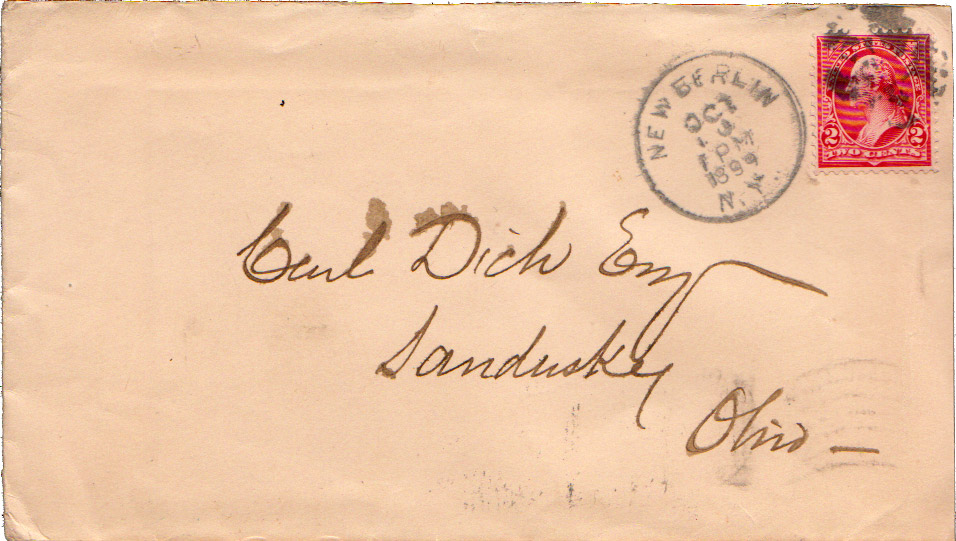 NEW BERLIN
OCT
3
1 PM
1899
N.Y.
2 2
TWO CENTS
Carl Dich Esq
Sandusky
Ohio —